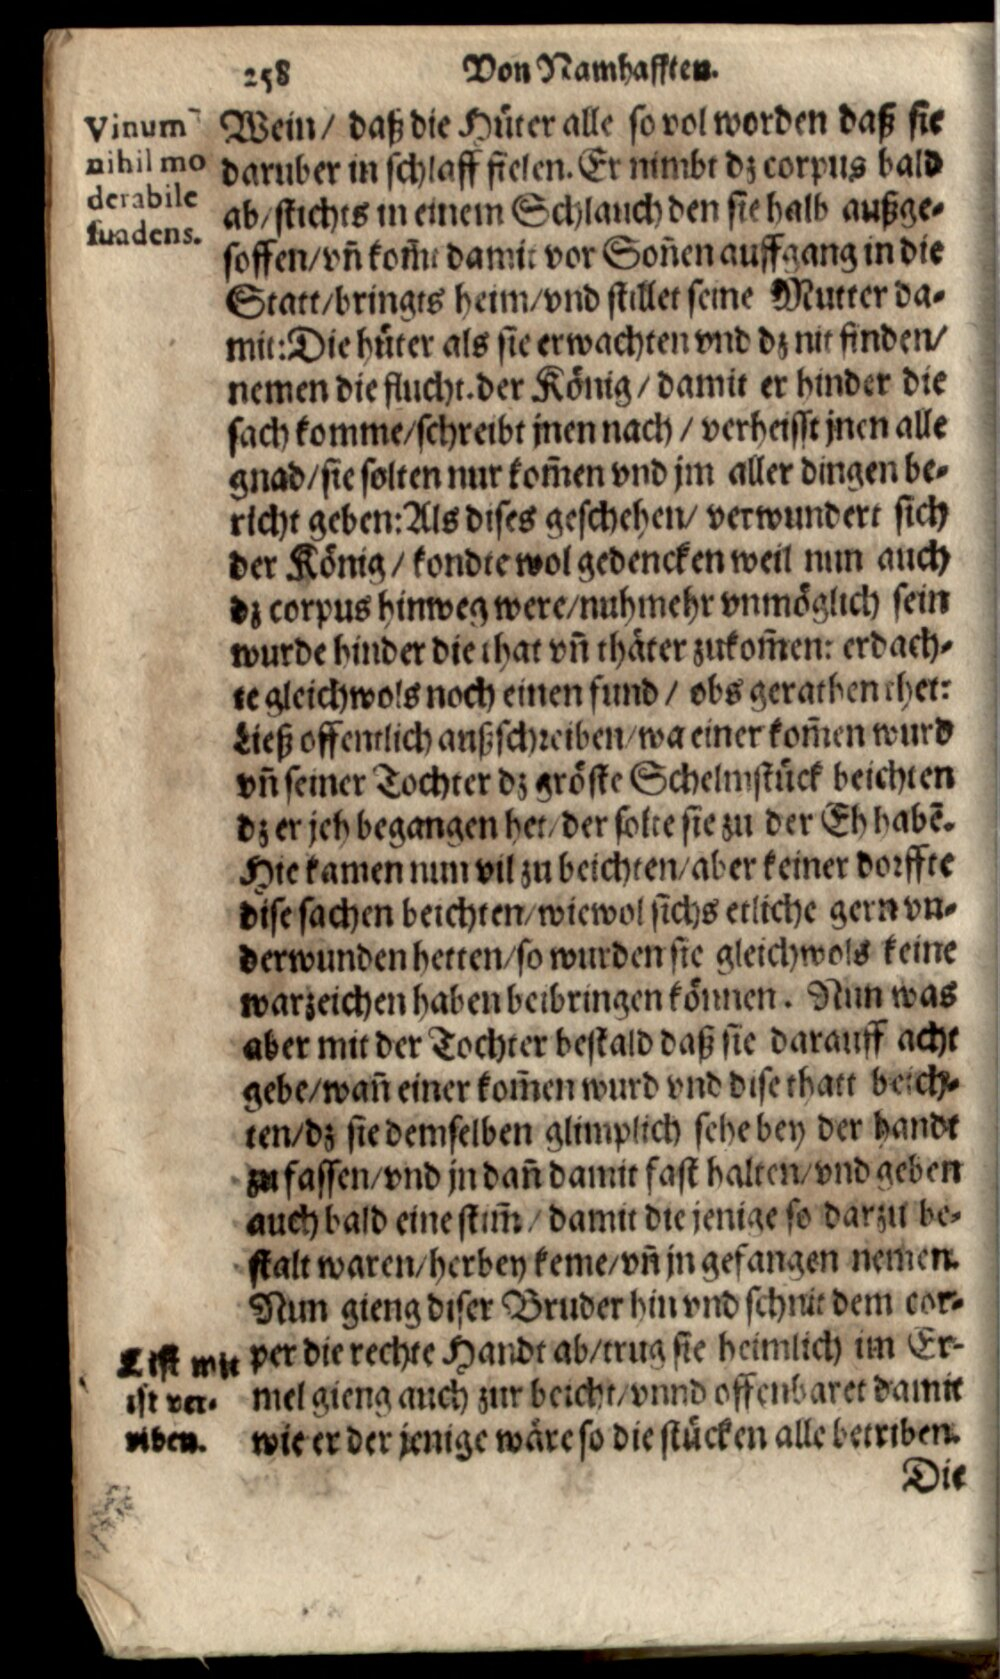 258 Von Namhafften.
Vinum
nihil mo
derabile
suadens.
Wein / daß die Hüter alle so vol worden daß sie
daruber in schlaff fielen. Er nimbt dz corpus bald
ab / stichts in einem Schlauch den sie halb außge-
soffen / vñ kom̃t damit vor Soñen auffgang in die
Statt / bringts heim / vnd stillet seine Mutter da-
mit: Die hüter als sie erwachten vnd dz nit finden /
nemen die flucht. der König / damit er hinder die
sach komme / schreibt jnen nach / verheisst jnen alle
gnad / sie solten nur kom̃en vnd jm aller dingen be-
richt geben: Als dises geschehen / verwundert sich
der König / kondte wol gedencken weil nun auch
dz corpus hinweg were / nuhmehr vnmöglich sein
wurde hinder die that vñ thäter zukom̃en: erdach-
te gleichwols noch einen fund / obs gerathen thet:
Ließ offentlich außschreiben / wa einer kom̃en wurd
vñ seiner Tochter dz gröste Schelmstück beichten
dz er jeh begangen het / der solte sie zu der Eh habẽ.
Hie kamen nun vil zu beichten / aber keiner dorffte
dise sachen beichten / wiewol sichs etliche gern vn-
derwunden hetten / so wurden sie gleichwols keine
warzeichen haben beibringen können. Nun was
aber mit der Tochter bestald daß sie darauff acht
gebe / wañ einer kom̃en wurd vnd dise thatt beich-
ten / dz sie demselben glimplich sehe bey der handt
zu fassen / vnd jn dañ damit fast halten / vnd geben
auch bald eine stim̃ / damit die jenige so darzu be-
stalt waren / herbey keme / vñ jn gefangen nemen.
Nun gieng diser Bruder hin vnd schnit dem cor-
per die rechte Handt ab / trug sie heimlich im Er-
mel gieng auch zur beicht / vnnd offenbaret damit
wie er der jenige wäre so die stücken alle betriben.
List mit
ist ver-
riben.
Die